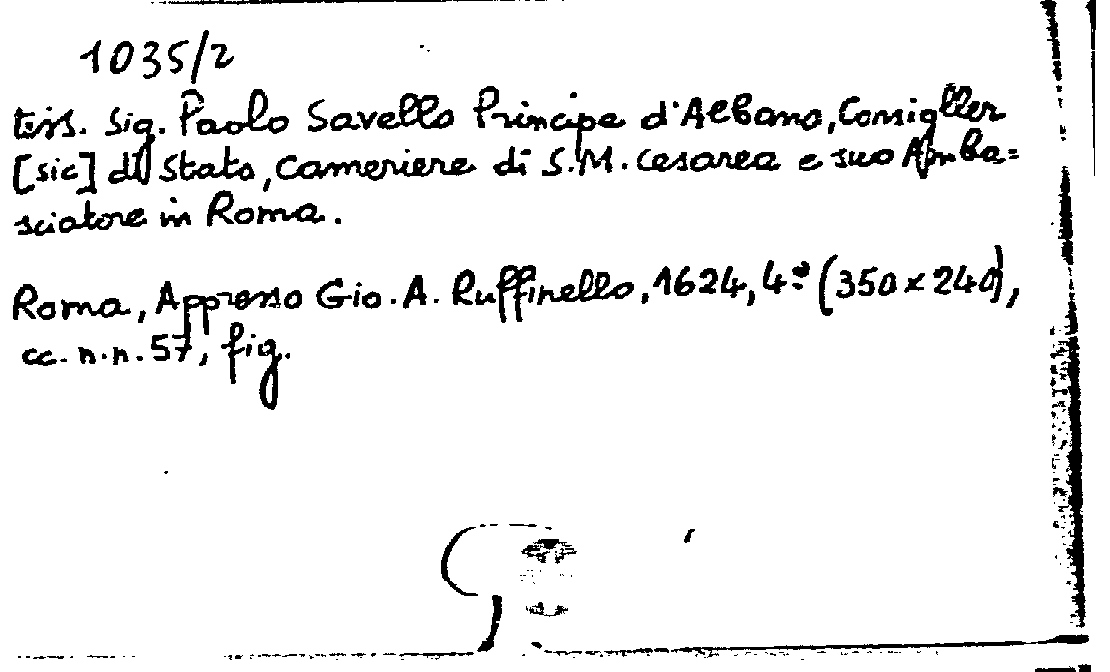 1035/2
tiss. Sig. Paolo Savello Principe d'Albano, Consiglier
[sic] di Stato, Cameriere di S.M. Cesarea e suo Amba=
sciatore in Roma.
Roma, Appresso Gio. A. Ruffinello, 1624, 4º (350 x 240),
cc. n.n. 57, fig.